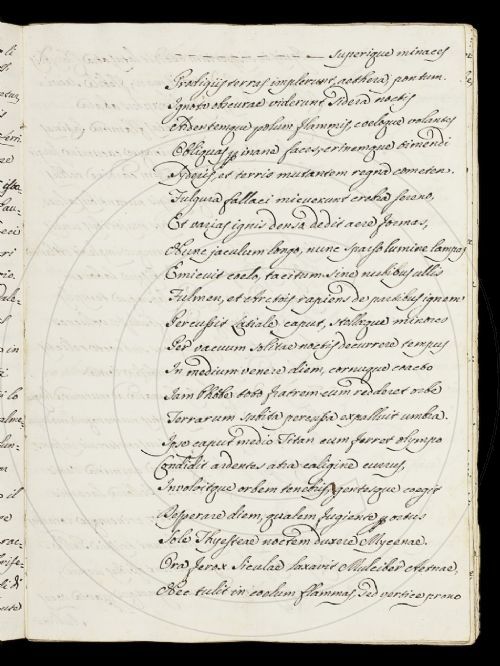 — superique minaces
Prodigiis terras implerunt, aethera, pontum.
Ignota obscurae viderunt sidera noctis
Ardentemque polum flammis, coeloque volantes
Obliquas p inane faces, crinemque timendi
Sideris, et terris mutantem regna cometen.
Fulgura fallaci micuerunt crebra sereno,
Et varias ignis denso dedit aere formas,
Nunc jaculum longo, nunc sparso lumine lampas
Emicuit coelo, tacitum sine nubibus ullis
Fulmen, et Arctois rapiens de partibus ignem
Percussit Latiale caput, stellaque minores
Per vacuum solitae noctis decurrere tempus
In medium venere diem, cornuque coacto
Iam Phöbe toto fratrem cum redderet orbe
Terrarum subita percussa expalluit umbra.
Ipse caput medio Titan cum ferret olympo
Condidit ardentes atra caligine currus,
Involvitque orbem tenebris, gentesque coegit
Desperare diem, qualem fugiente p ortus
Sole Thyesteae noctem duxere Mycenae.
Ora ferox Siculae laxavit Mulciber Aetnae
Nec tulit in coelum flammas, sed vertice prono